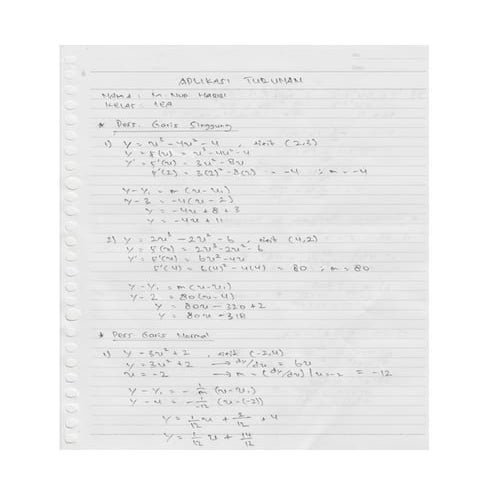 APLIKASI TURUNAN
Nama : M. Nur Habibi
Kelas : 1EA
* Pers. Garis Singgung
1) y = x³ - 4x² - 4 , titik (2,3)
y = f(x) = x³ - 4x² - 4
y' = f'(x) = 3x² - 8x
f'(2) = 3(2)² - 8(2) = -4 ; m = -4
y - y₁ = m (x - x₁)
y - 3 = -4 (x - 2)
y = -4x + 8 + 3
y = -4x + 11
2) y = 2x³ - 2x² - 6 , titik (4,2)
y = f(x) = 2x³ - 2x² - 6
y' = f'(x) = 6x² - 4x
f'(4) = 6(4)² - 4(4) = 80 ; m = 80
y - y₁ = m (x - x₁)
y - 2 = 80 (x - 4)
y = 80x - 320 + 2
y = 80x - 318
* Pers Garis Normal
1) y = 3x² + 2 , titik (-2,4)
y = 3x² + 2 → dy/dx = 6x
x = -2 → m = [dy/dx] | x = -2 = -12
y - y₁ = - 1/m (x - x₁)
y - 4 = - 1/-12 (x - (-2))
y = 1/12 x + 2/12 + 4
y = 1/12 x + 14/12